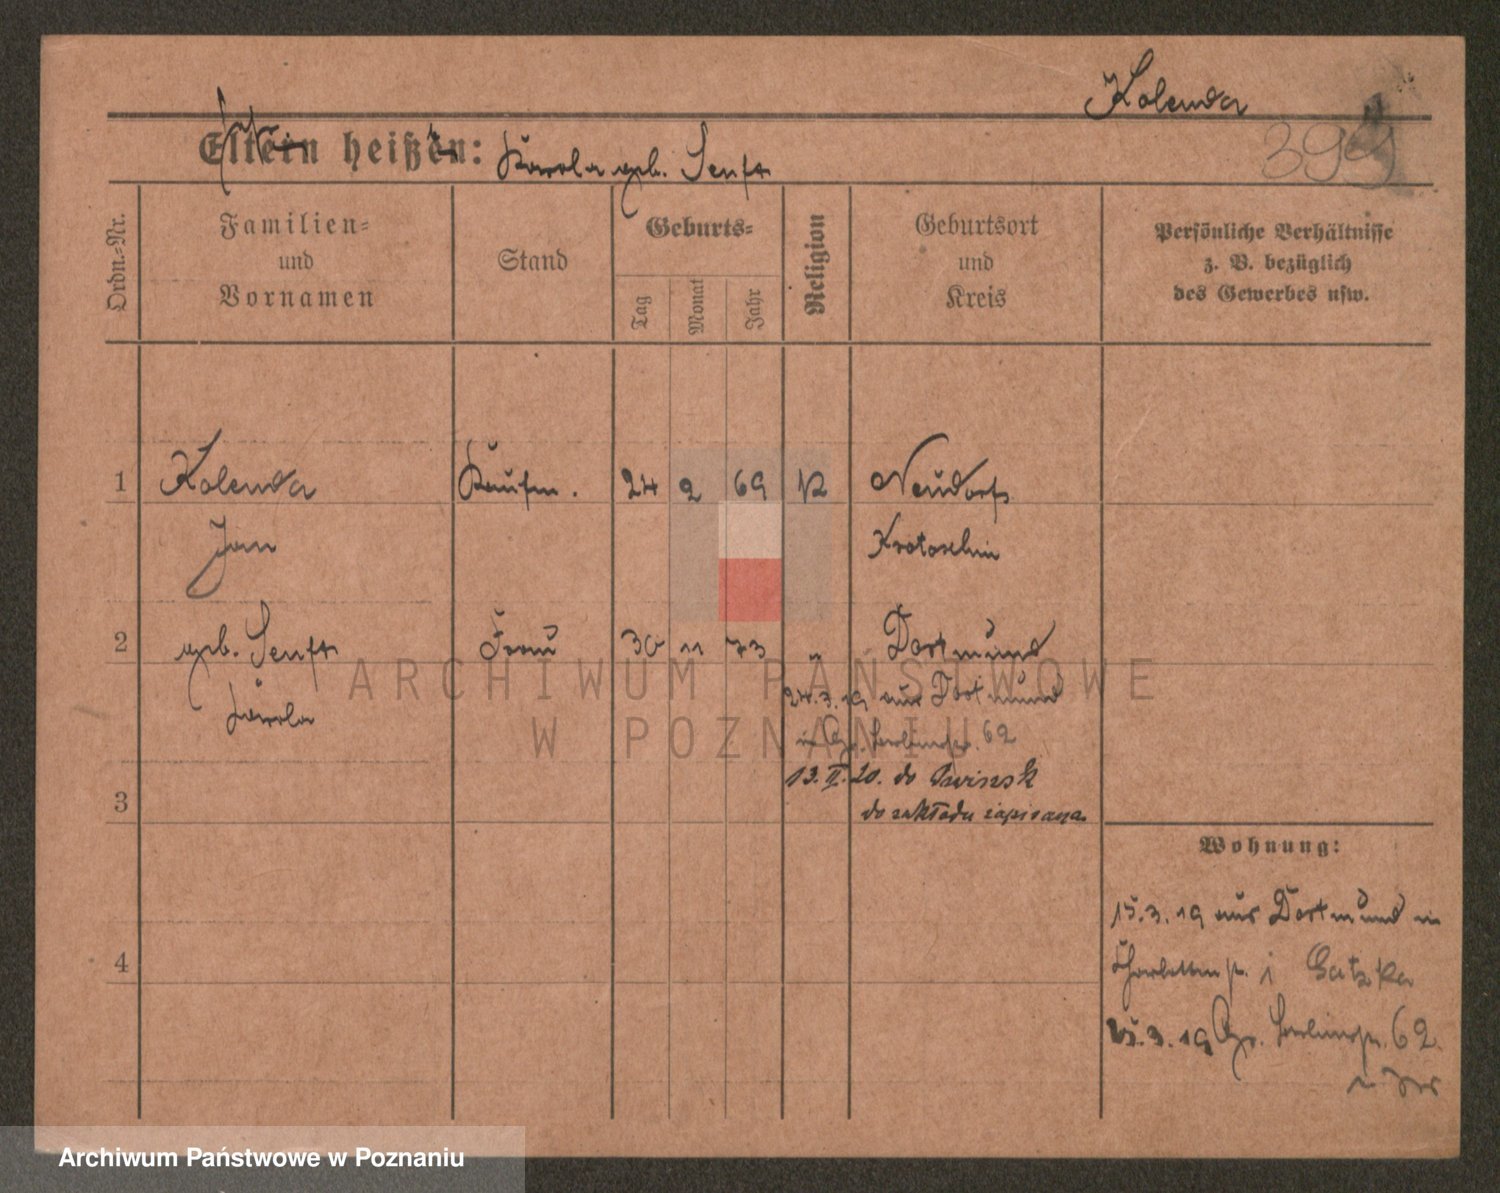 Kolenda
Eltern heißen: Karola geb. Senft
399
Ordn.-Nr.
Familien-
und
Vornamen
Stand
Geburts-
Tag
Monat
Jahr
Religion
Geburtsort
und
Kreis
Persönliche Verhältnisse
z. B. bezüglich
des Gewerbes usw.
1 Kolenda Kaufm. 24 2 69 K Neudorf
Jan Krotoschin
2 geb. Senft Frau 30 11 73 " Dortmund
Karola
24.3.19 aus Dortmund
62
3 13. II. 20. do
do zakładu zapisana
4
Wohnung:
15.3.19 aus Dortmund in
1 Gatzka
25.3.19 62
ARCHIWUM PAŃSTWOWE
W POZNANIU
Archiwum Państwowe w Poznaniu